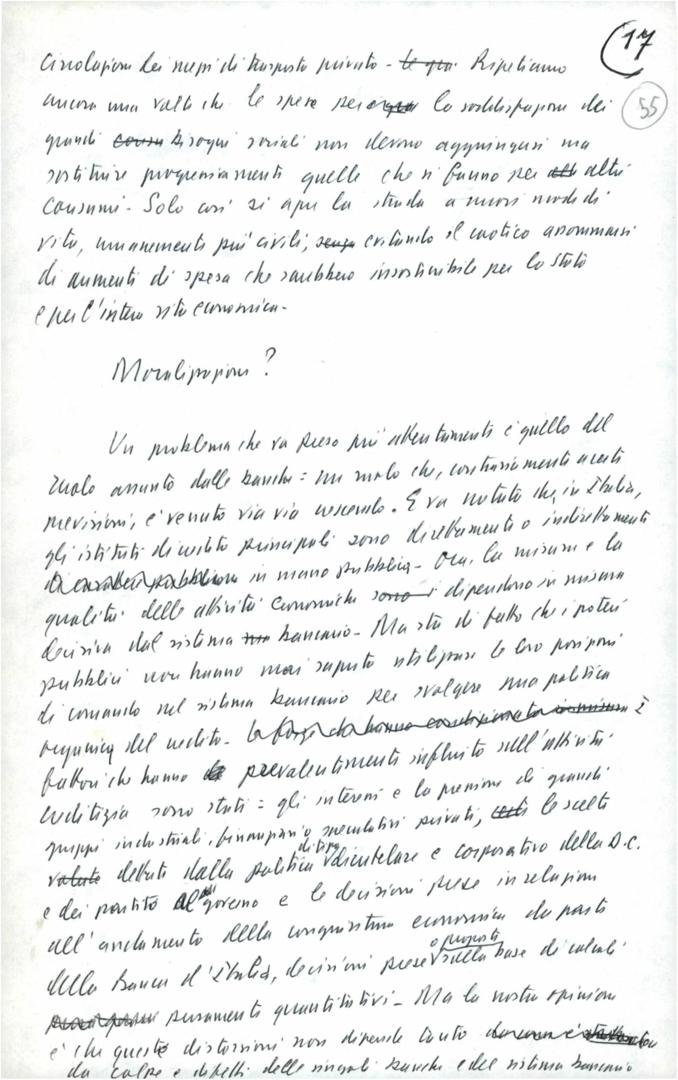 17
55
circolazione dei mezzi di trasporto privato - Ripetiamo
ancora una volta che le spese per la soddisfazione dei
grandi bisogni sociali non devono aggiungersi ma
sostituire progressivamente quelle che si fanno per altri
consumi - Solo così si apre la strada a nuovi modi di
vita, umanamente più civili, evitando il caotico assommarsi
di aumenti di spesa che sarebbero insostenibile per lo stato
e per l'intera vita economica -
Moralizzazione?
Un problema che va preso più attentamente è quello del
ruolo assunto dalle banche: un ruolo che, contrariamente a certe
previsioni, è venuto via via crescendo. E va notato che, in Italia,
gli istituti di credito principali sono direttamente o indirettamente
in mano pubblica - Ora, la misura e la
qualità delle attività economiche dipendono in misura
decisiva dal sistema bancario - Ma sta di fatto che i poteri
pubblici non hanno mai saputo utilizzare le loro posizioni
di comando nel sistema bancario per svolgere una politica
organica del credito - I
fattori che hanno prevalentemente influito sull'attività
creditizia sono stati: gli interessi e la pressione di grandi
gruppi industriali, finanziari o speculativi privati, le scelte
dettate dalla politica di tipo clientelare e corporativo della D.C.
e dei partiti al governo e le decisioni prese in relazione
all'andamento della congiuntura economica da parte
della Banca d'Italia, decisioni prese o proposte sulla base di calcoli
puramente quantitativi - Ma la nostra opinione
è che queste distorsioni non dipende tanto
da colpe e difetti delle singole banche e del sistema bancario